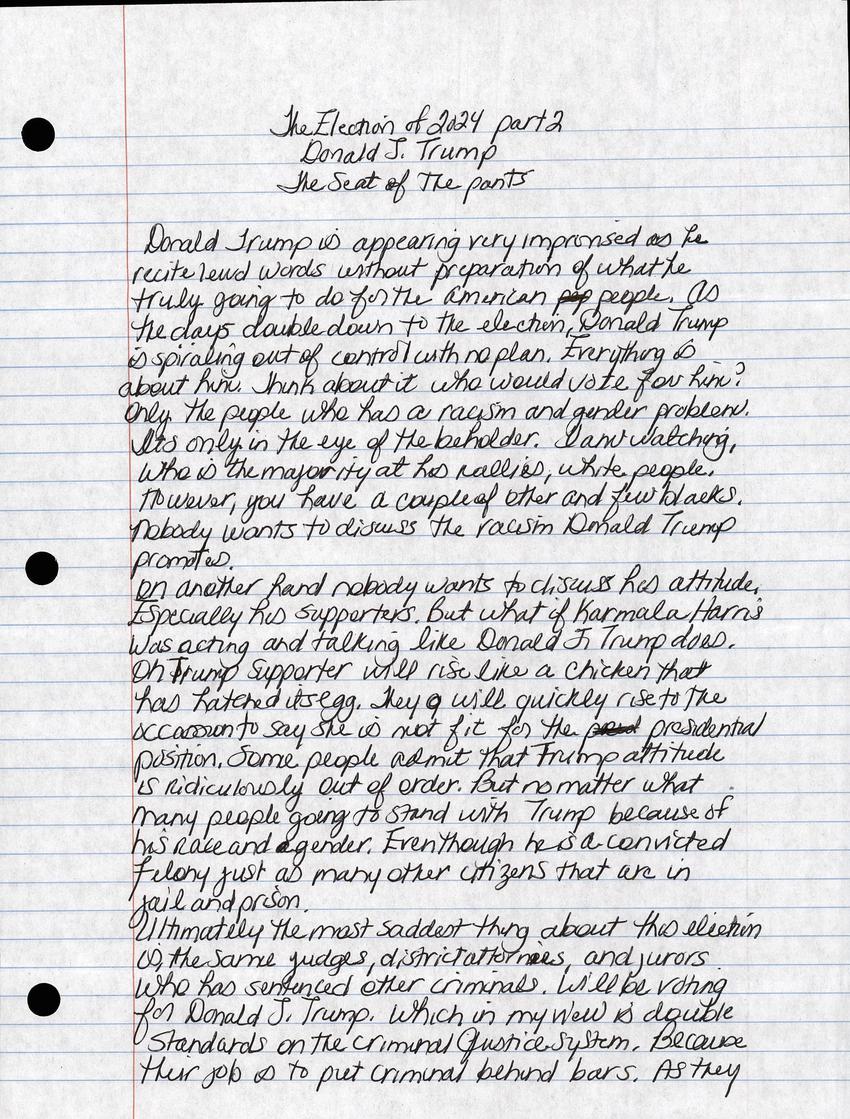 The Election of 2024 part 2
Donald J. Trump
The Seat of The pants
Donald Trump is appearing very impronised as he
recite lewd words without preparation of what he
truly going to do for the american people. As
the days double down to the election, Donald Trump
is spiraling out of control with no plan. Everything is
about him. Think about it who would vote for him?
Only the people who has a racism and gender problem.
Its only in the eye of the beholder. I am watching,
who is the majority at his rallies, white people.
However, you have a couple of other and few blacks.
Nobody wants to discuss the racism Donald Trump
promotes.
On another hand nobody wants to discuss his attitude.
Especially his supporters. But what if Karmala Harris
was acting and talking like Donald J. Trump does.
Oh Trump supporter will rise like a chicken that
has hatched its egg. They will quickly rise to the
occasson to say she is not fit for the presidential
position. Some people admit that Trump attitude
is ridiculously out of order. But no matter what
many people going to stand with Trump because of
his race and gender. Even though he is a convicted
felony just as many other citizens that are in
jail and prison.
Ultimately the most saddest thing about this election
is, the same judges, district attornies, and jurors
who has sentenced other criminals. Will be voting
for Donald J. Trump. Which in my view is double
Standards on the criminal Justice System. Because
their job is to put criminal behind bars. As they